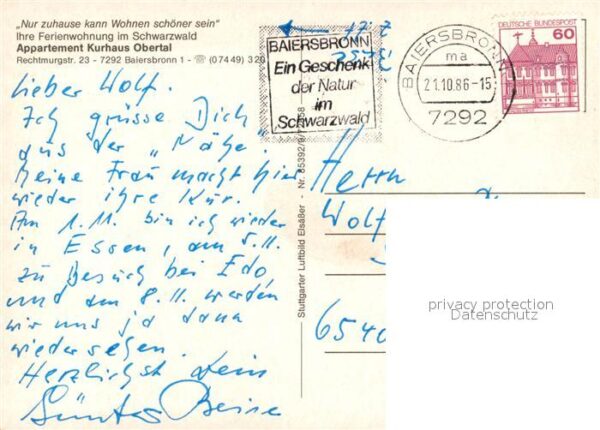 „Nur zuhause kann Wohnen schöner sein“
Ihre Ferienwohnung im Schwarzwald
Appartement Kurhaus Obertal
Rechtmurgstr. 23 - 7292 Baiersbronn 1 - ☏ (07449) 320
Lieber Wolf.
Ich grüsse Dich
aus der „Nähe“
Meine Frau macht hier
wieder ihre Kur.
Am 1.11. bin ich wieder
in Essen, am 5.11.
zu Besuch bei Edo
und am 8.11. werden
wir uns ja dann
wiedersehen.
Herzlichst Dein
Günter
Stuttgarter Luftbild Elsäßer - Nr. 85392/9/
BAIERSBRONN
Ein Geschenk
der Natur
im
Schwarzwald
BAIERSBRONN
ma
21.10.86-15
7292
DEUTSCHE BUNDESPOST
60
Herrn
Wolf
6540
privacy protection
Datenschutz